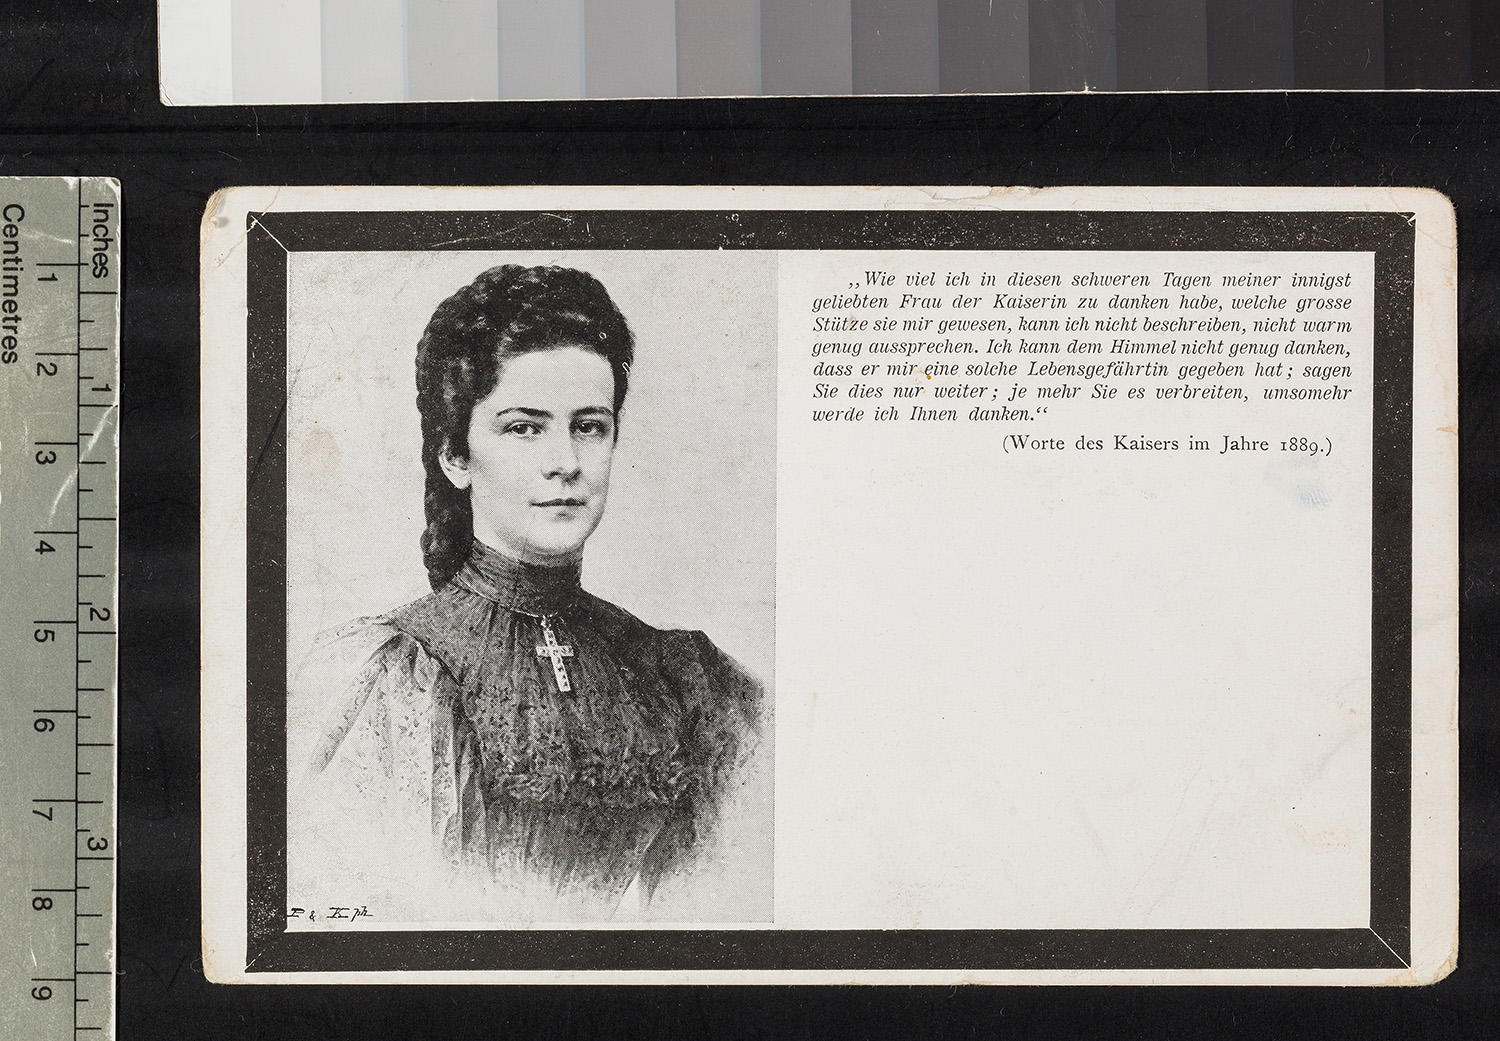 Inches
Centimetres
1
2
3
4
5
6
7
8
9
1
2
3
„Wie viel ich in diesen schweren Tagen meiner innigst
geliebten Frau der Kaiserin zu danken habe, welche grosse
Stütze sie mir gewesen, kann ich nicht beschreiben, nicht warm
genug aussprechen. Ich kann dem Himmel nicht genug danken,
dass er mir eine solche Lebensgefährtin gegeben hat; sagen
Sie dies nur weiter; je mehr Sie es verbreiten, umsomehr
werde ich Ihnen danken.“
(Worte des Kaisers im Jahre 1889.)
P & K ph